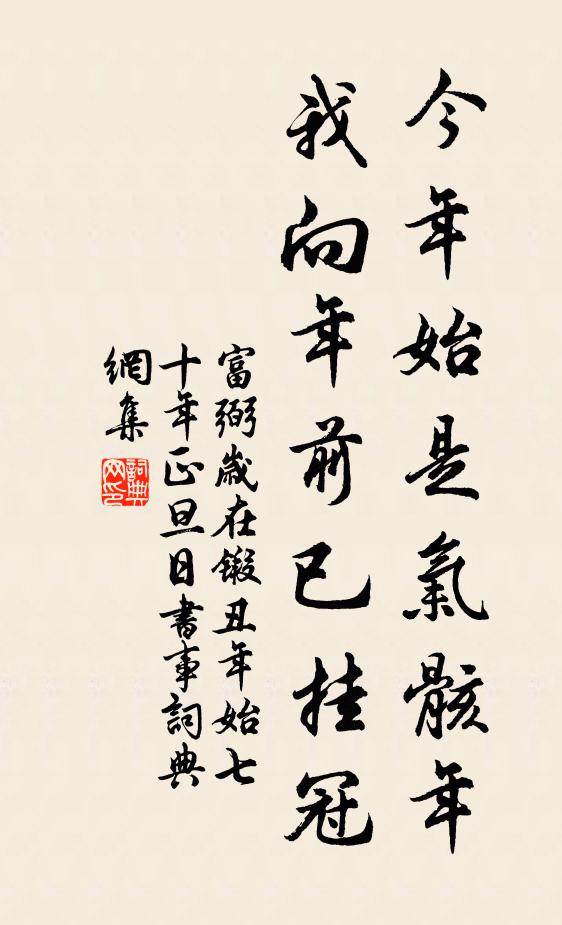 今年始是氣骸年
我向年前已挂冠
富弼歲在鍛丑年始七
十年正旦日書事詞典
網集
詞典
网印